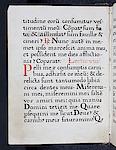 titudine eorū consumitur ves
timentum meū Cōpat' sum lu
to, & assimilat' sum fauille &
cineri Nunc autē in me
met ipso marcescit anima me
a, et possident me dies afflictio
nis Comparat' Lectio
Pelli mee consumptis car
nibus, adhesit os meū: & de
relicta sunt tantummodo labia
circa dentes meos. Misere
mini mei, miseremini mei sal
tem vos amici mei: quia manus
Domini tetigit me Quare
persequimini me sicut Deus &
carnibus meis saturamini